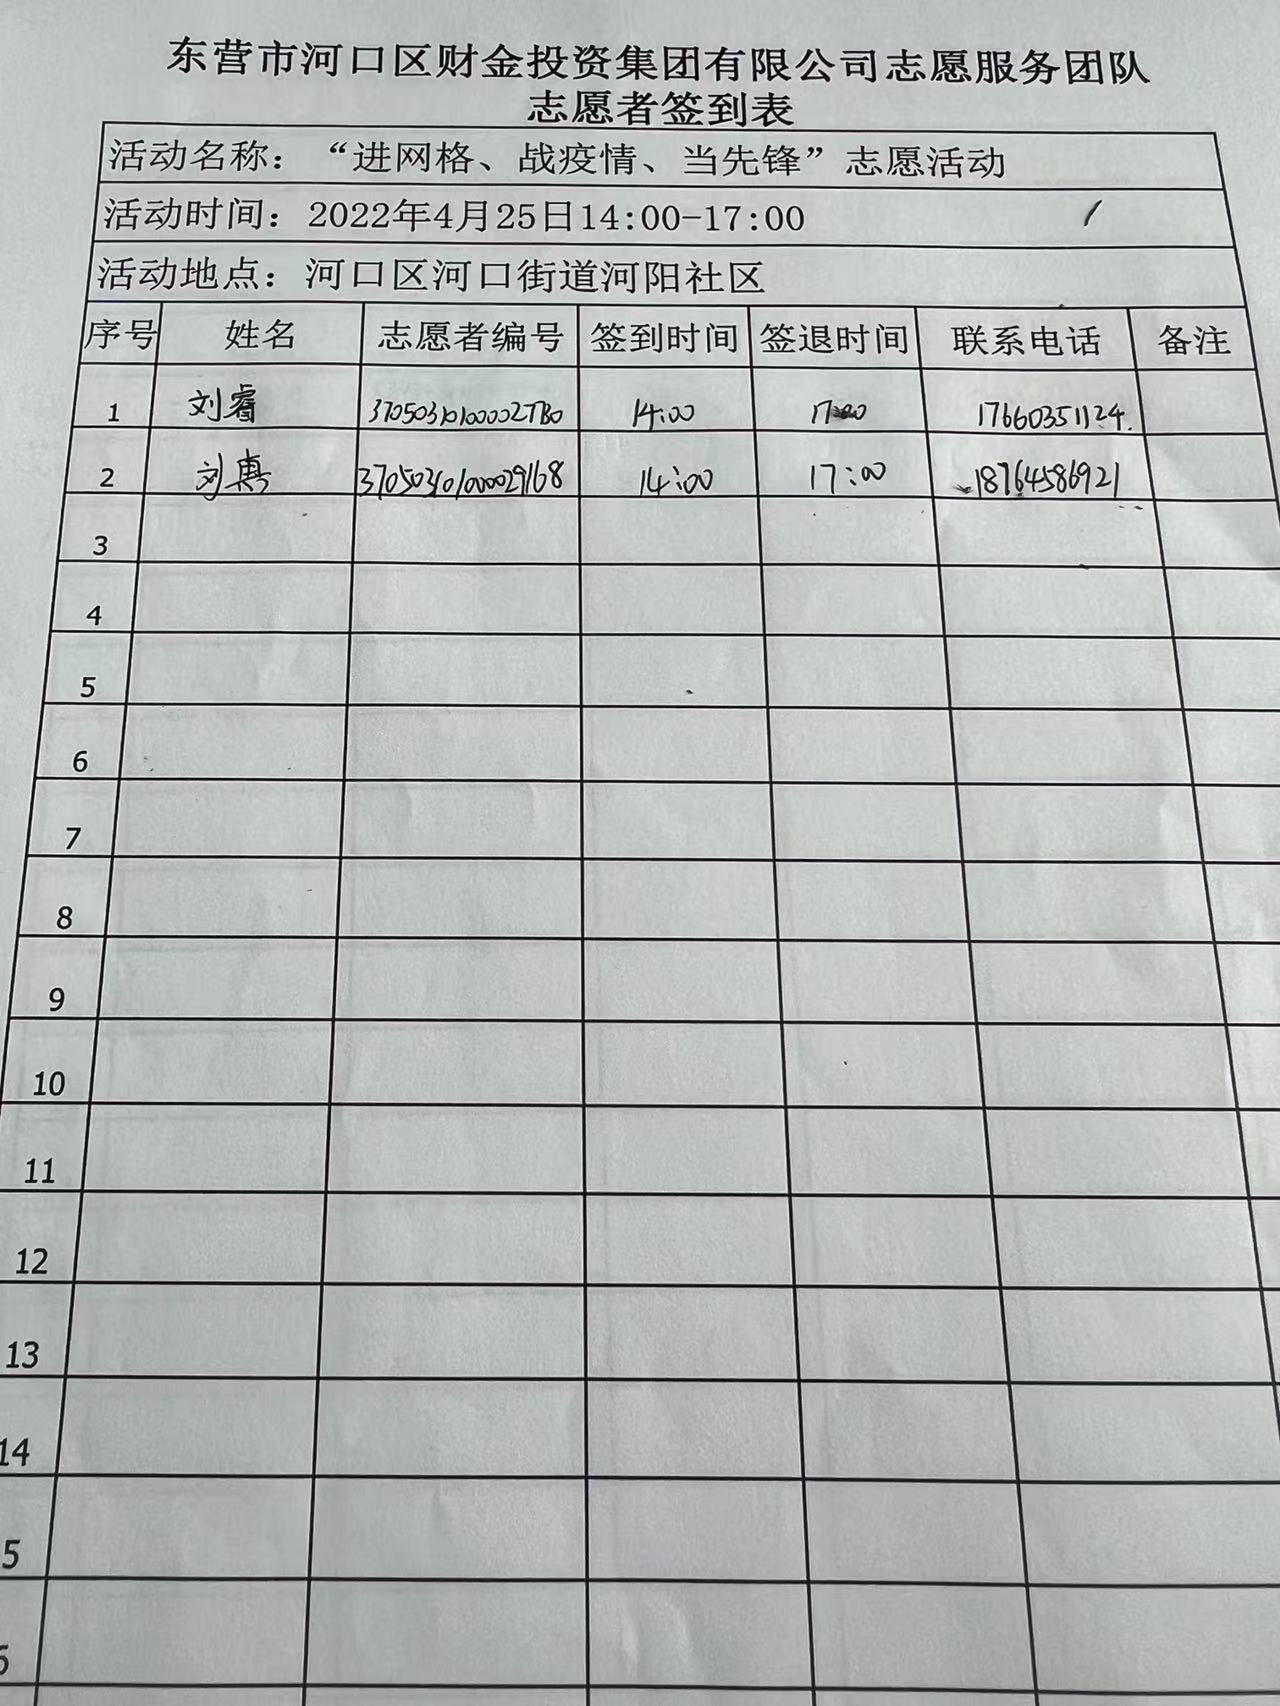 东营市河口区财金投资集团有限公司志愿服务团队
志愿者签到表
活动名称：“进网格、战疫情、当先锋”志愿活动
活动时间：2022年4月25日14:00-17:00
活动地点：河口区河口街道河阳社区
序号 姓名 志愿者编号 签到时间 签退时间 联系电话 备注
1 刘睿 14:00 17:00 17660351124
2 刘真 14:00 17:00 18764586921
3
4
5
6
7
8
9
10
11
12
13
14
5